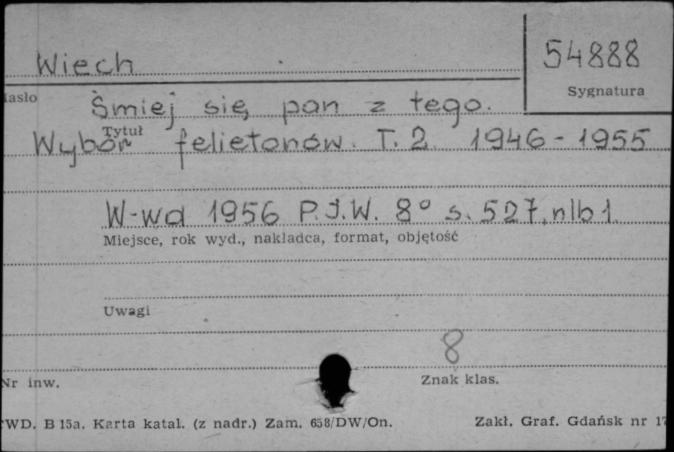 Wiech 54888
asło Sygnatura
Śmiej się pan z tego.
Tytuł
Wybór felietonów. T. 2 1946-1955
W-wa 1956 P.I.W. 8° s. 527, nlb 1.
Miejsce, rok wyd., nakladca, format, objętość
Uwagi
8
Nr inw. Znak klas.
WD. B 15a. Karta katal. (z nadr.) Zam. 658/DW/On. Zakł. Graf. Gdańsk nr 17